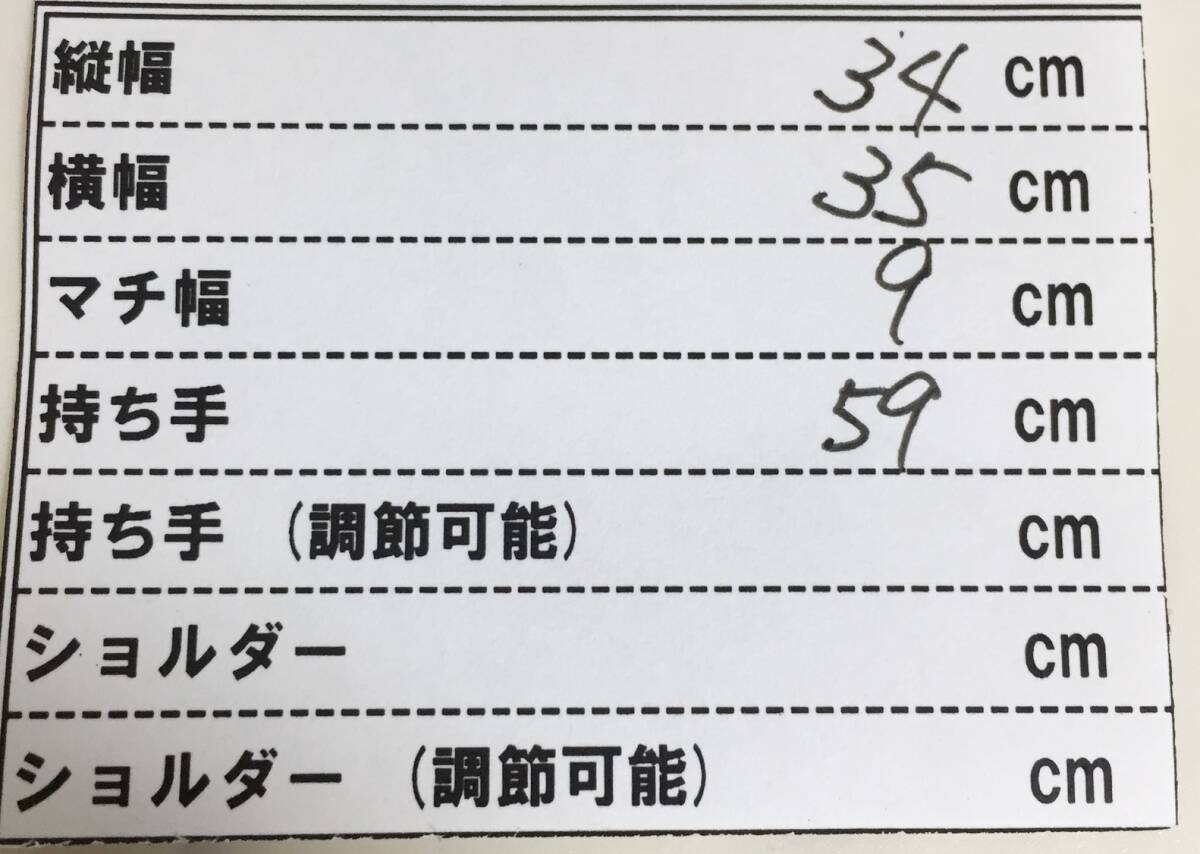 縦幅 34 cm
横幅 35 cm
マチ幅 9 cm
持ち手 59 cm
持ち手 (調節可能) cm
ショルダー cm
ショルダー (調節可能) cm